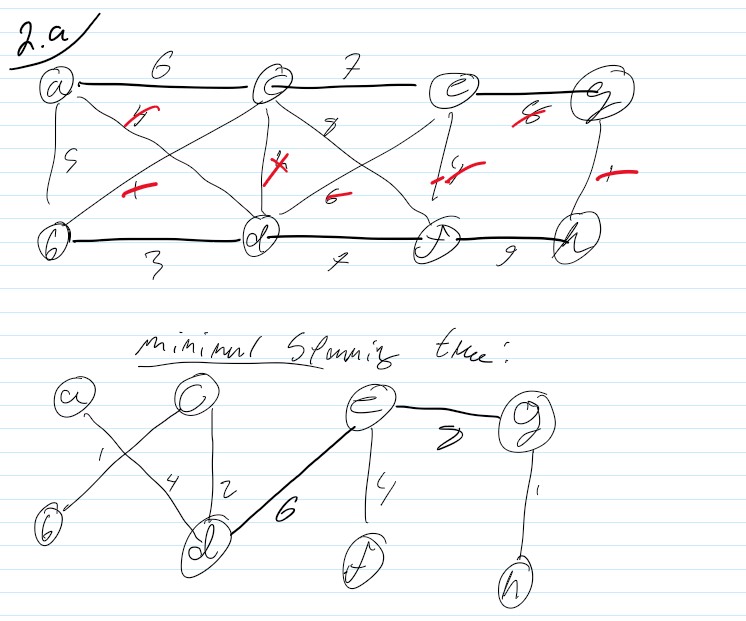 2.a
a 6 c 7 e g
5 8
b 3 d 7 f 9 h
minimal Spannig tree:
a c e 8 g
1 4 2 6 4 1
b d f h